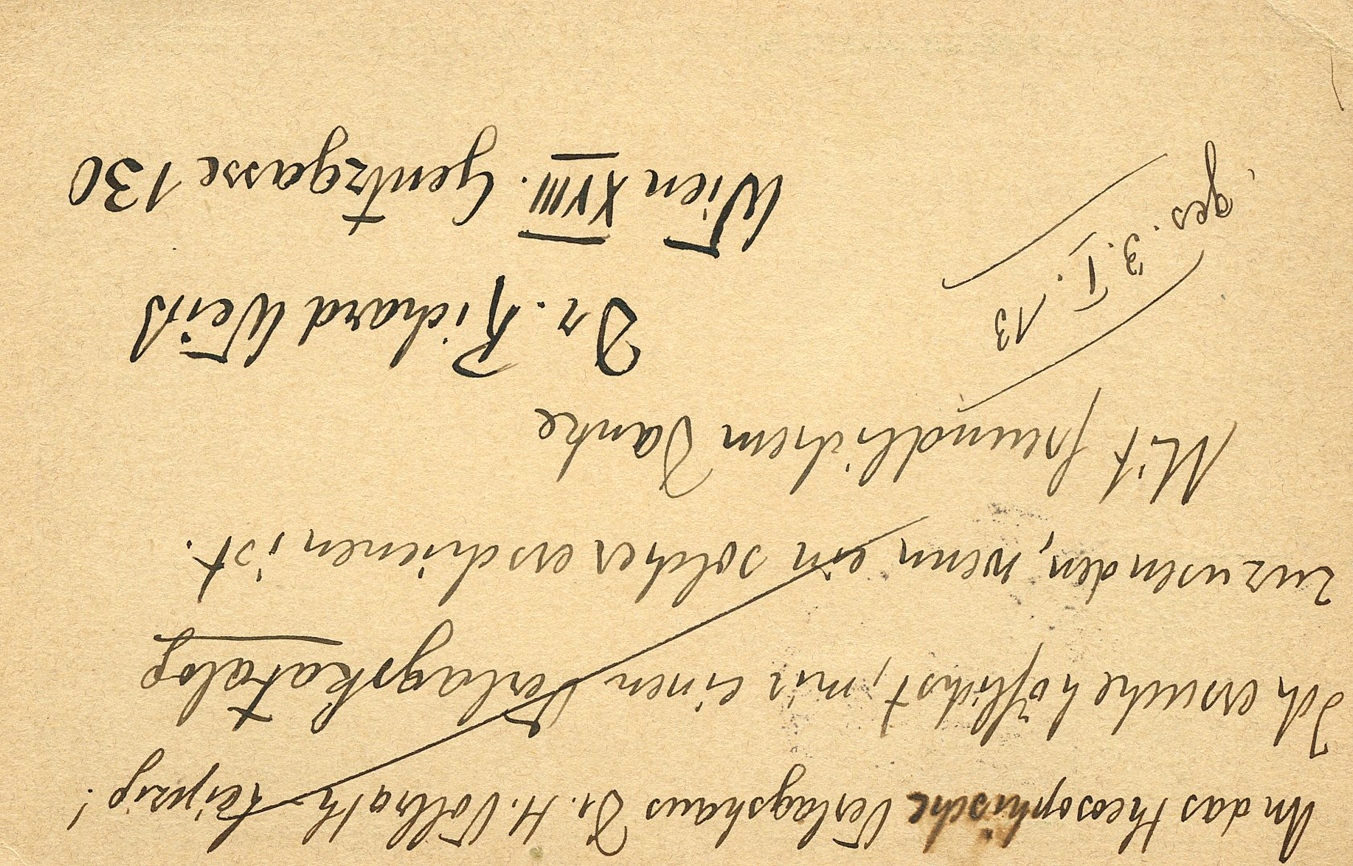 An das Theosophische Verlagshaus Dr. H. Vollrath, Leipzig!
Ich ersuche höflichst, mir einen Verlagskatalog
zuzusenden, wenn ein solcher erschienen ist.
Mit freundlichem Danke
Dr. Richard Weiß
Wien XVIII. Gentzgasse 130
ges. 3. I. 13